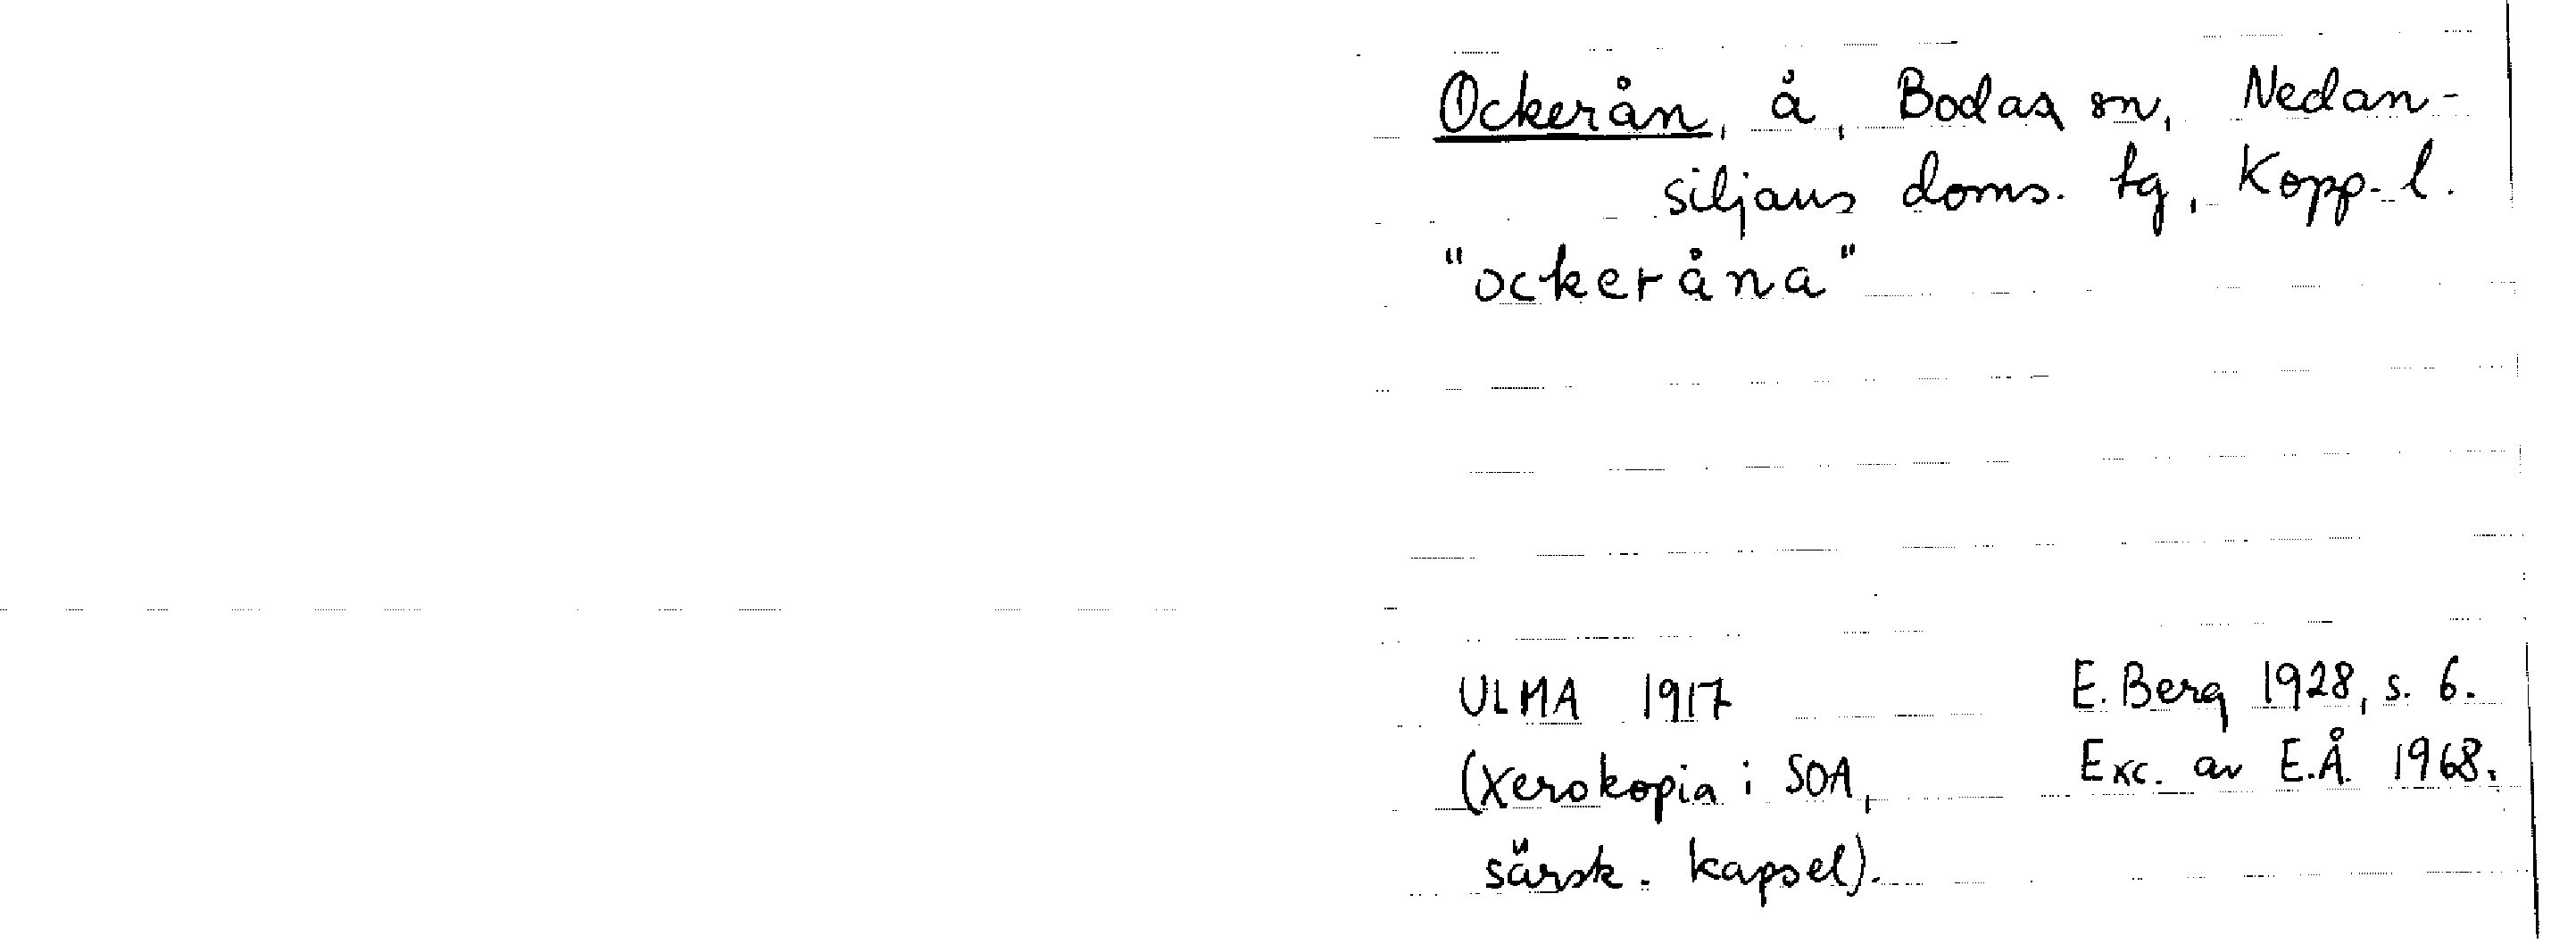 Ockerån, å, Bodas sn, Nedan-
siljans doms. tg, Kopp. l.
"ockeråna"
ULMA 1917 E. Berg 1928, s. 6.
(Xerokopia i SOA, Exc. av E.Å. 1968.
särsk. kapsel).